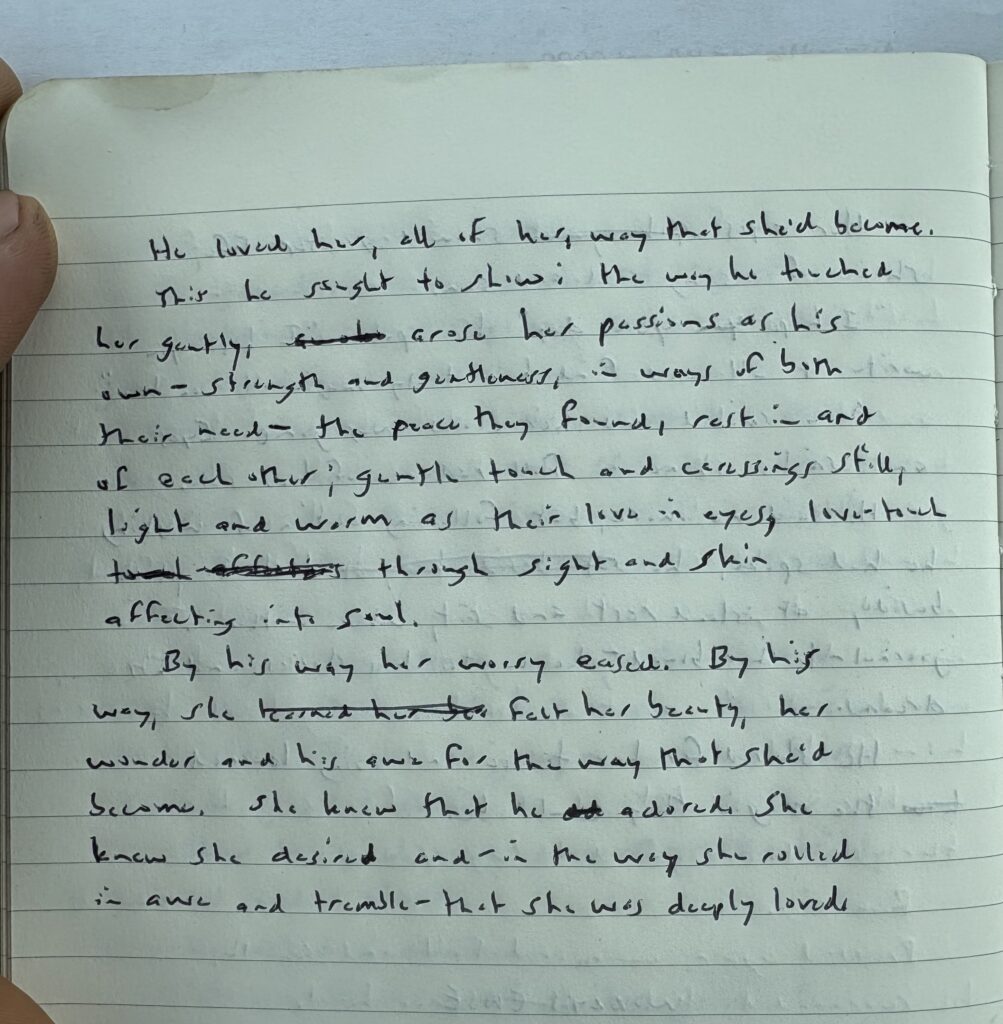 He loved her, all of her, way that she'd become.
This he sought to show; the way he touched
her gently, arose her passions as his
own - strength and gentleness, in ways of both
their need - the peace they found, rest in and
of each other; gentle touch and caressings still,
light and warm as their love in eyes, love-touch
through sight and skin
affecting into soul.
By his way her worry eased. By his
way, she felt her beauty, her
wonder and his awe for the way that she'd
become. She knew that he adored. She
knew she desired and - in the way she rolled
in awe and tremble - that she was deeply loved.